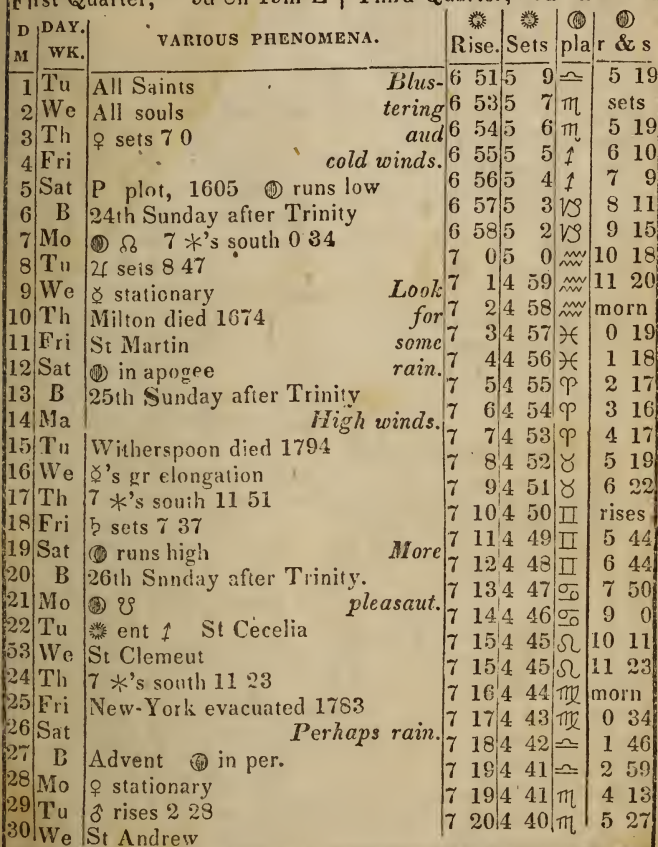 First Quarter,
Third Quarter,
D M | DAY. WK. | VARIOUS PHENOMENA. | Rise. | Sets | pla | r & s
1 Tu All Saints Blus- 6 51 5 9 ♎ 5 19
2 We All souls tering 6 53 5 7 ♏ sets
3 Th ♀ sets 7 0 aud 6 54 5 6 ♏ 5 19
4 Fri cold winds. 6 55 5 5 ♐ 6 10
5 Sat P plot, 1605 runs low 6 56 5 4 ♐ 7 9
6 B 24th Sunday after Trinity 6 57 5 3 ♑ 8 11
7 Mo ☊ 7 *'s south 0 34 6 58 5 2 ♑ 9 15
8 Tu ♃ sets 8 47 7 0 5 0 ♒ 10 18
9 We ☿ stationary Look 7 1 4 59 ♒ 11 20
10 Th Milton died 1674 for 7 2 4 58 ♒ morn
11 Fri St Martin some 7 3 4 57 ♓ 0 19
12 Sat in apogee rain. 7 4 4 56 ♓ 1 18
13 B 25th Sunday after Trinity 7 5 4 55 ♈ 2 17
14 Ma High winds. 7 6 4 54 ♈ 3 16
15 Tu Witherspoon died 1794 7 7 4 53 ♈ 4 17
16 We ☿'s gr elongation 7 8 4 52 ♉ 5 19
17 Th 7 *'s south 11 51 7 9 4 51 ♉ 6 22
18 Fri ♄ sets 7 37 7 10 4 50 ♊ rises
19 Sat runs high More 7 11 4 49 ♊ 5 44
20 B 26th Snnday after Trinity. 7 12 4 48 ♊ 6 44
21 Mo ☋ pleasaut. 7 13 4 47 ♋ 7 50
22 Tu ent ♐ St Cecelia 7 14 4 46 ♋ 9 0
53 We St Clemeut 7 15 4 45 ♌ 10 11
24 Th 7 *'s south 11 23 7 15 4 45 ♌ 11 23
25 Fri New-York evacuated 1783 7 16 4 44 ♍ morn
26 Sat Perhaps rain. 7 17 4 43 ♍ 0 34
27 B Advent in per. 7 18 4 42 ♎ 1 46
28 Mo ♀ stationary 7 19 4 41 ♎ 2 59
29 Tu ♂ rises 2 28 7 19 4 41 ♏ 4 13
30 We St Andrew 7 20 4 40 ♏ 5 27